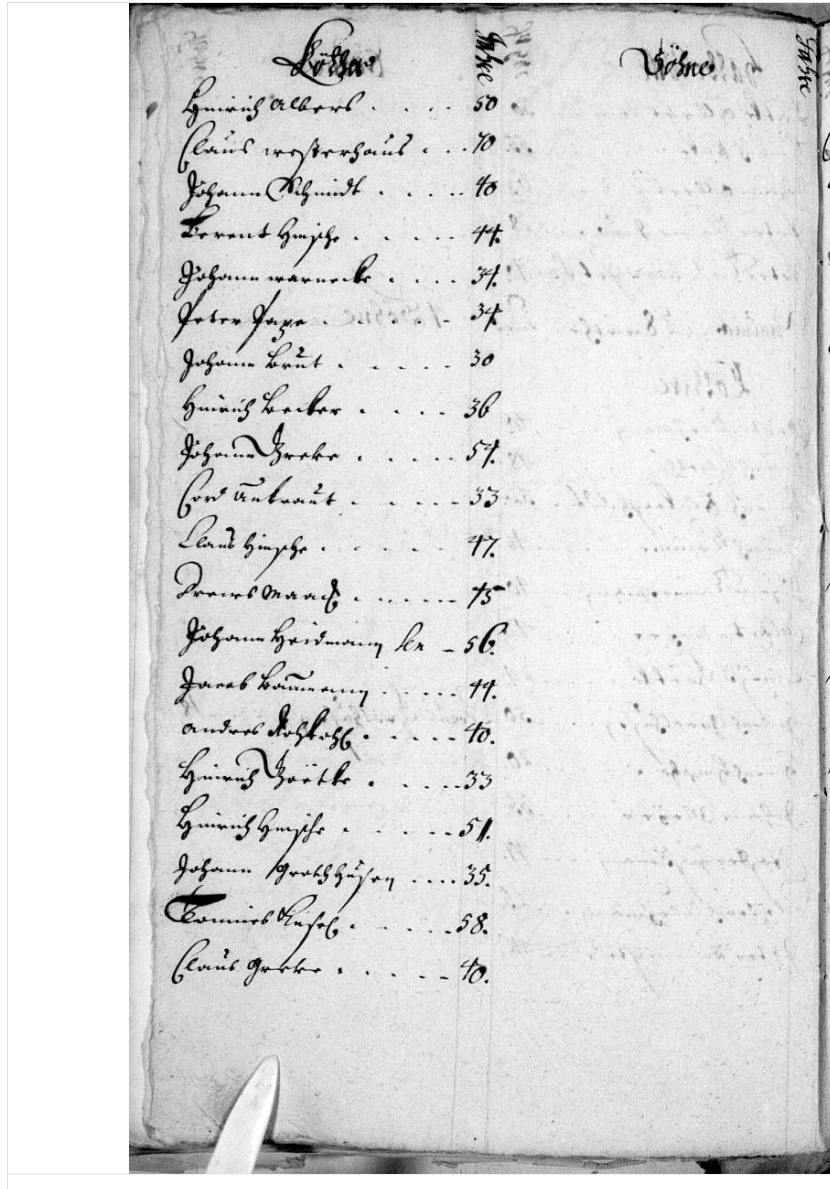 Köther Jahre Söhne Jahre
Hinrich Albers . . . . 50
Claus westerhaus . . . 70
Johann Schmidt . . . . 40
Berent Hinsche . . . . 44.
Johann warnecke . . . . 34.
Peter Pape . . . . 34.
Johann Brüt . . . . 30
Hinrich Becker . . . . 36
Johann Greke . . . . 54.
Cord . . . . 33
Claus Hinsche . . . . 47.
Drewes Maack . . . . 45
Johann Heidmann Sen – 56.
Jacob Baumann . . . . 44.
Andres Kohlkohl . . . . 40.
Hinrich . . . . 33
Hinrich Hinsche . . . . 51.
Johann Grothhusen . . . . 35.
. . . . 58.
Claus Greke . . . . 40.